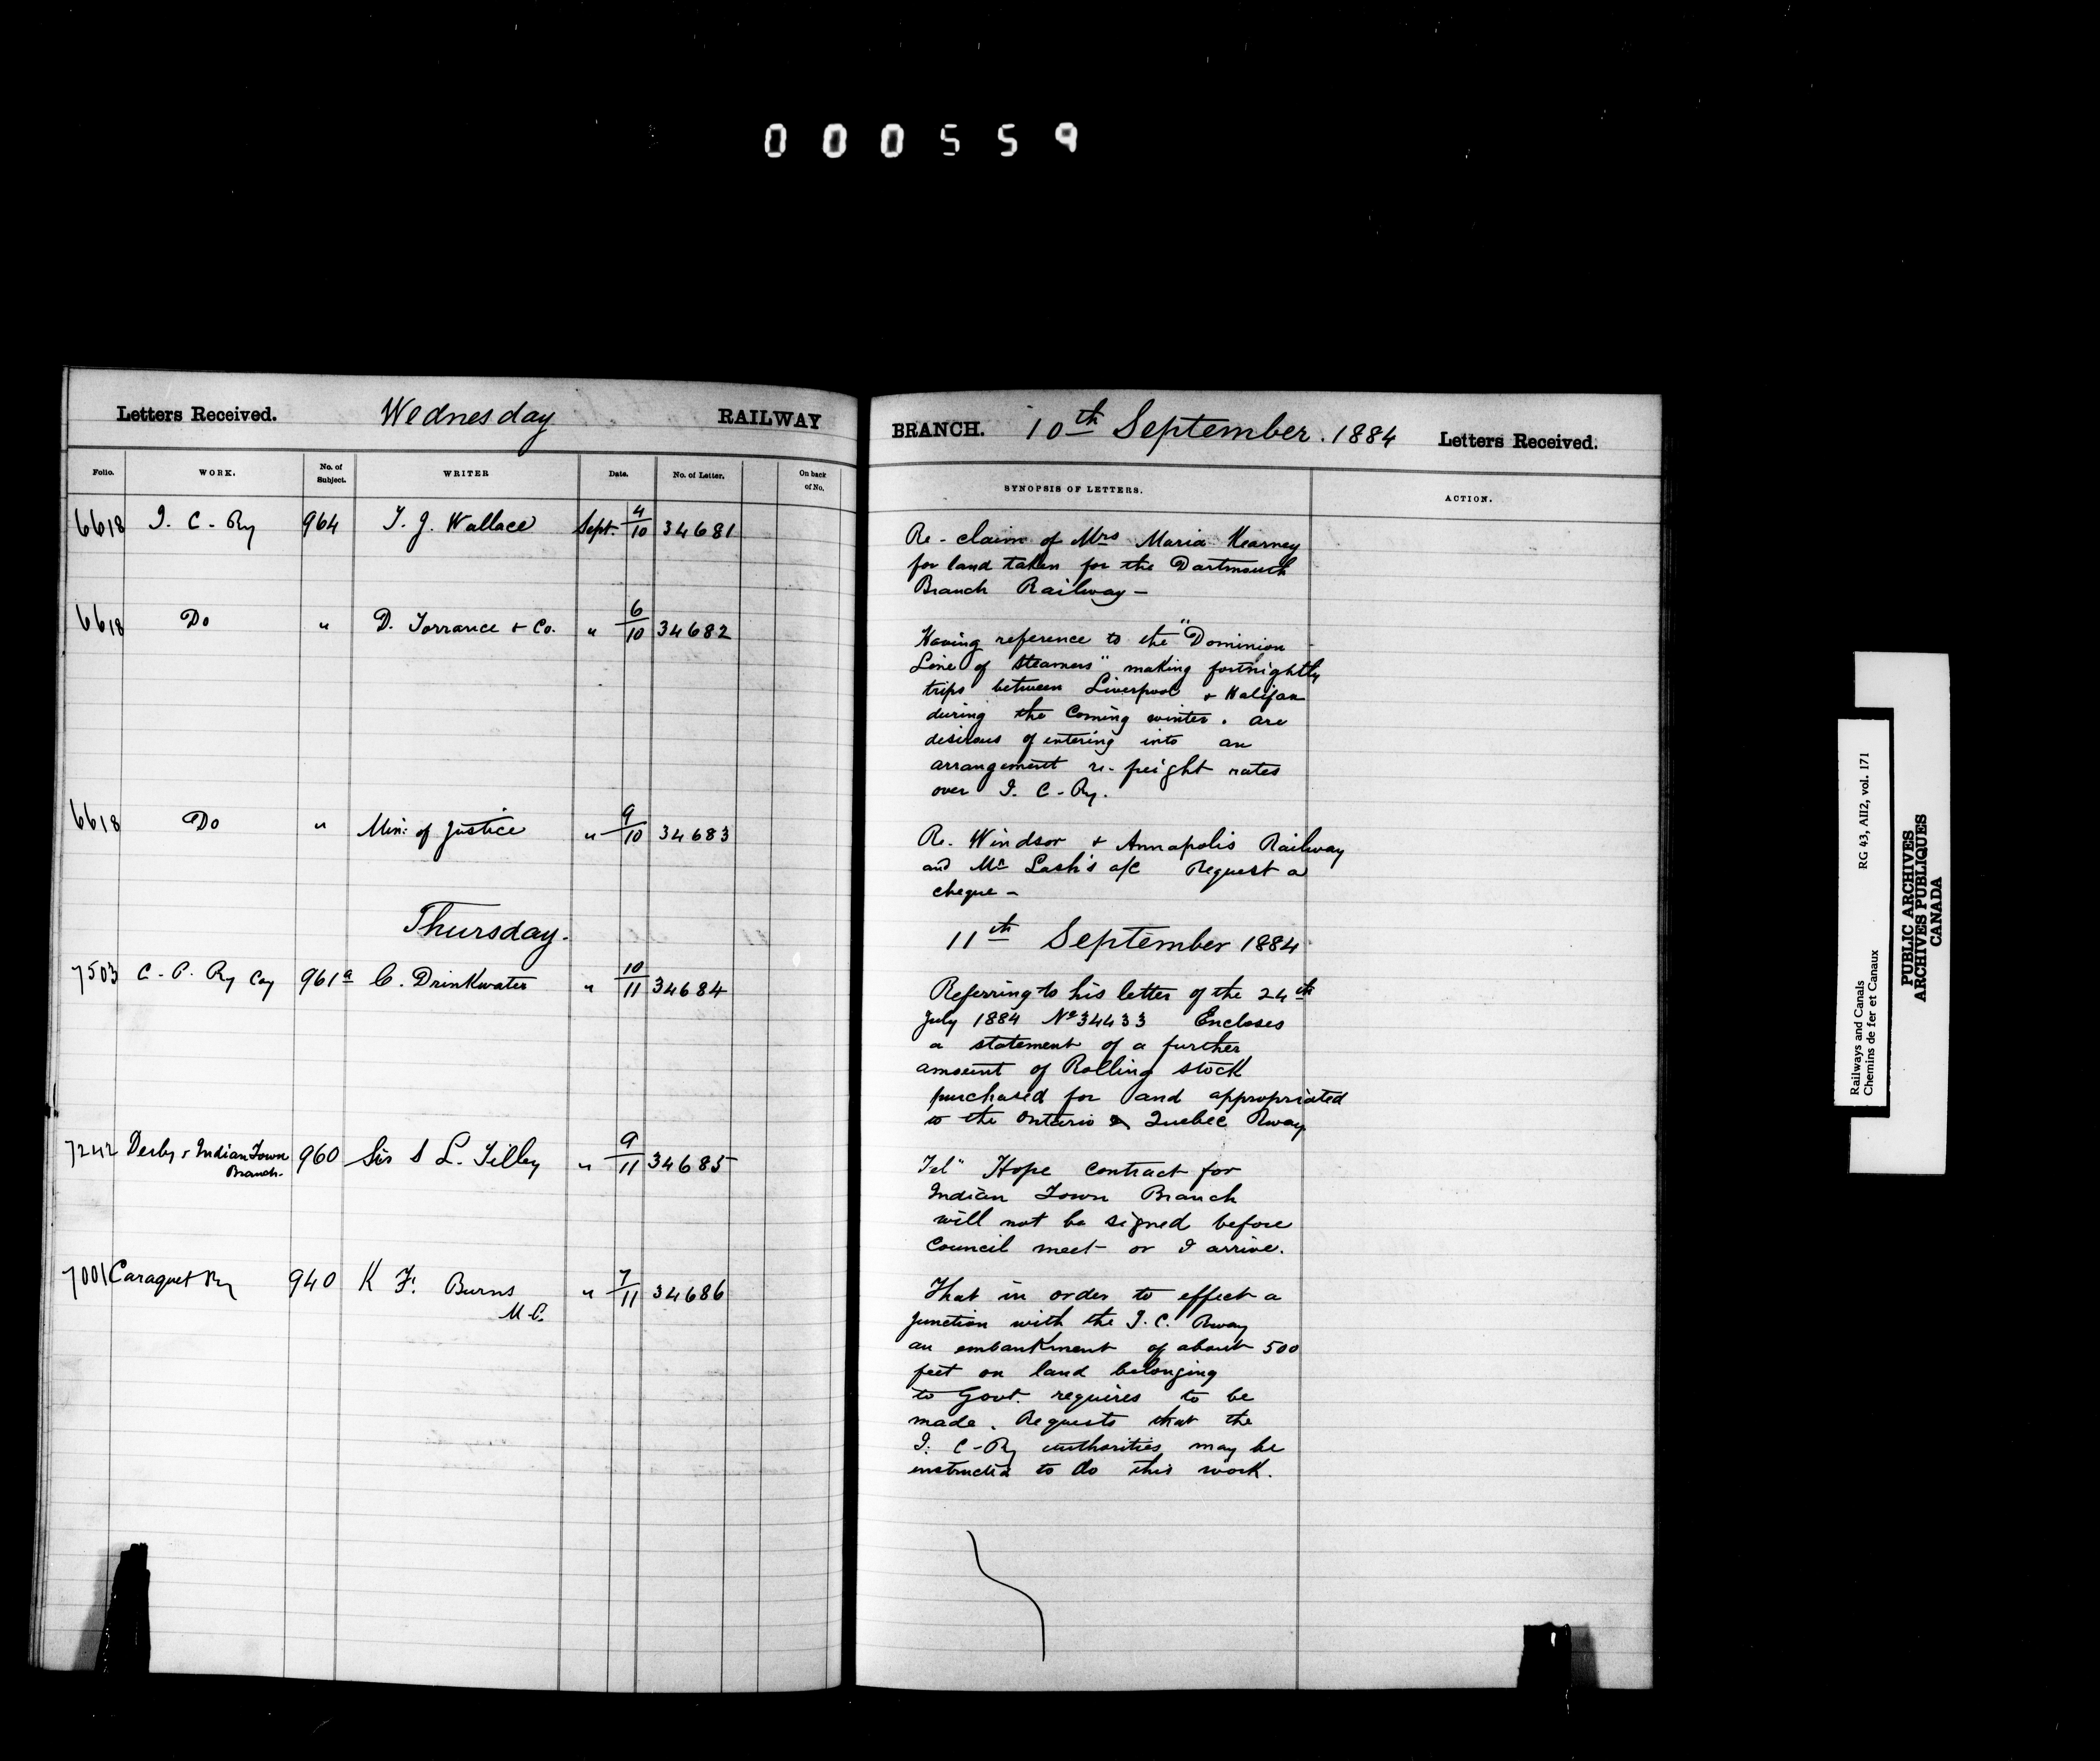 000559
Letters Received. Wednesday RAILWAY BRANCH. 10th September. 1884 Letters Received.
Folio. WORK. No. of Subject. WRITER Date. No. of Letter. On back of No. SYNOPSIS OF LETTERS. ACTION.
6618 I. C. Ry 964 T. J. Wallace Sept. 4/10 34681
Re-claim of Mrs Maria Kearney
for land taken for the Dartmouth
Branch Railway -
6618 Do " D. Torrance & Co. " 6/10 34682
Having reference to the "Dominion
Line of Steamers" making fortnightly
trips between Liverpool & Halifax
during the Coming winter. are
desirous of entering into an
arrangement re-freight rates
over I. C. Ry.
6618 Do " Min: of Justice " 9/10 34683
Re. Windsor & Annapolis Railway
and Mr Lash's a/c Request a
cheque -
Thursday. 11th September 1884
7503 C. P. Ry Coy 961a C. Drinkwater " 10/11 34684
Referring to his letter of the 24th
July 1884 No 34433 Encloses
a statement of a further
amount of Rolling stock
purchased for and appropriated
to the Ontario & Quebec Rway
7242 Derby & Indian Town Branch. 960 Sir S L. Tilley " 9/11 34685
Tel" Hope Contract for
Indian Town Branch
will not be signed before
Council meet or I arrive.
7001 Caraquet Ry 940 K F. Burns " 7/11 34686
M.P.
That in order to effect a
Junction with the I. C. Rway
an embankment of about 500
feet on land belonging
to Govt. requires to be
made. Requests that the
I. C-Ry authorities may be
instructed to do this work.
Railways and Canals RG 43, AII2, vol. 171
Chemins de fer et Canaux
PUBLIC ARCHIVES
ARCHIVES PUBLIQUES
CANADA